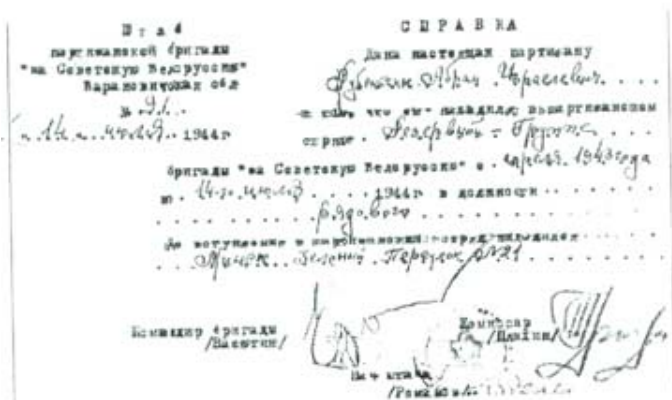 Штаб
партизанской бригады
"за Советскую Белоруссию"
Барановичская обл
№ 91.
"14" июля 1944г
СПРАВКА
Дана настоящая партизану
Абрам Израелевич
в том, что он находился в партизанском
отряде Резервной - Группе
бригады "за Советскую Белоруссию" с апреля 1943 года
по 14-го июля 1944г в должности
рядового
До вступления в партизанский отряд находился
Минск Зеленый Переулок №21
Командир бригады
/Васютин/
Комиссар
Нач штаба